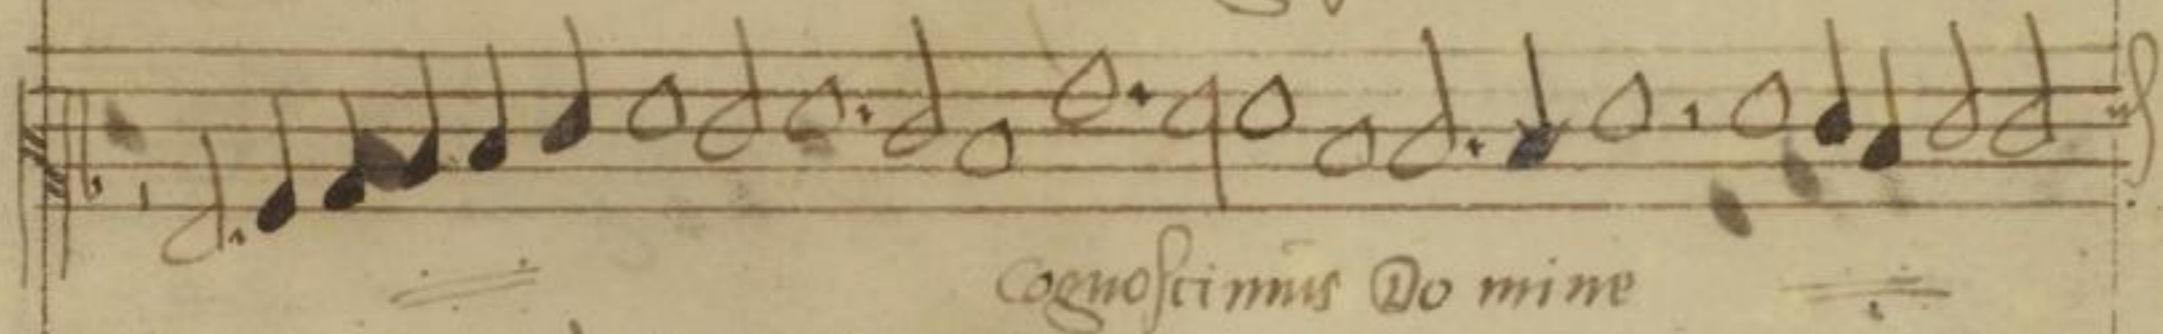 Cognoscimus Do mine